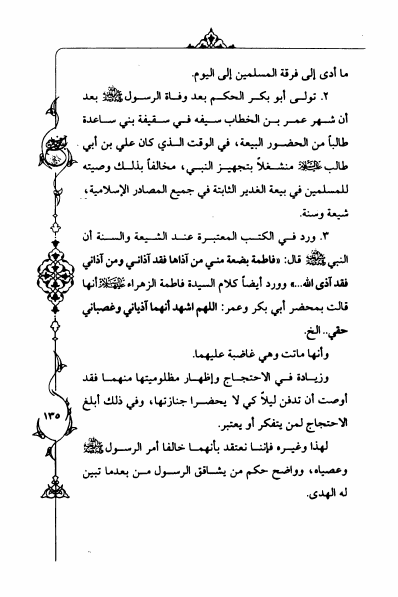 ما أدى إلى فرقة المسلمين إلى اليوم.
٢. تولى أبو بكر الحكم بعد وفاة الرسول ﷺ بعد
أن شهر عمر بن الخطاب سيفه في سقيفة بني ساعدة
طالباً من الحضور البيعة، في الوقت الذي كان علي بن أبي
طالب منشغلاً بتجهيز النبي، مخالفاً بذلك وصيته
للمسلمين في بيعة الغدير الثابتة في جميع المصادر الإسلامية،
شيعة وسنة.
٣. ورد في الكتب المعتبرة عند الشيعة والسنة أن
النبي ﷺ قال: «فاطمة بضعة مني من آذاها فقد آذاني ومن آذاني
فقد آذى الله...» وورد أيضاً كلام السيدة فاطمة الزهراء أنها
قالت بمحضر أبي بكر وعمر: اللهم اشهد أنهما آذياني وغصباني
حقي.. الخ.
وأنها ماتت وهي غاضبة عليهما.
وزيادة في الاحتجاج وإظهار مظلوميتها منهما فقد
أوصت أن تدفن ليلاً كي لا يحضرا جنازتها، وفي ذلك أبلغ
الاحتجاج لمن يتفكر أو يعتبر.
١٣٥
لهذا وغيره فإننا نعتقد بأنهما خالفا أمر الرسول ﷺ
وعصياه، وواضح حكم من يشاقق الرسول من بعدما تبين
له الهدى.